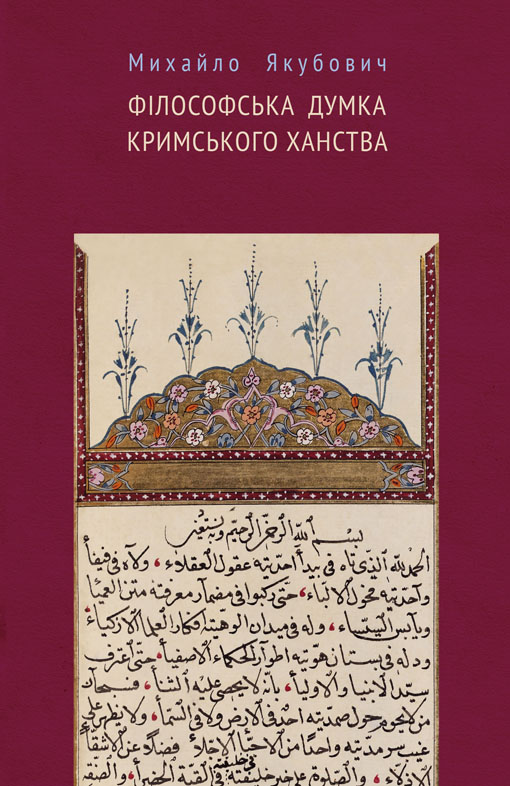 Михайло Якубович
ФІЛОСОФСЬКА ДУМКА
КРИМСЬКОГО ХАНСТВА
بسم الله الرحمن الرحيم وبه نستعين
الحمد لله الذي تاه في بيدآ احديته عقول العقلاء، ولآه في فيفآ
وآحديته فحول الالبآء، حتى ركبوا في مضمار معرفته متن العميا
وله في ميدان الوهيته افكار العلمآ الازكيآء
ودله في بستان هويته اطوار الحكمآء الاصفيآ، حتى اعترف
سيد الانبيا والاوليآ، بانه لا يحصى عليه الثنآ، فسبحان
من لا يحوم حول صمديته احد في الارض ولا في السمآ، ولا يظهر على
غيب سرمديته واحدا من الاحبآ الاخلآء فضلا عن الاشقآ
الاذلاء، والصلوة على خير خليقته في القبة الخضرآ والصفة